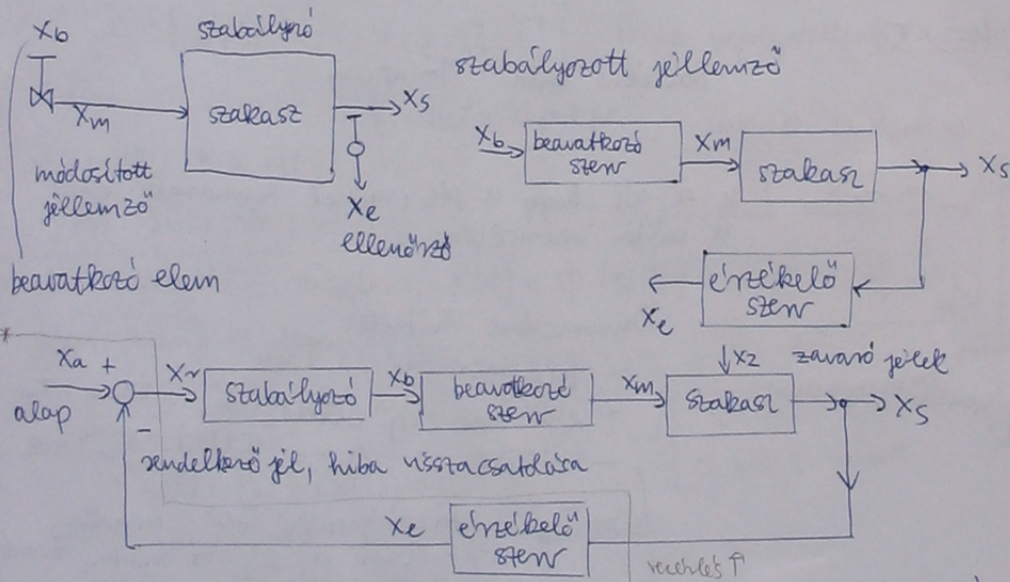 xb
szabályzó
szakasz
xm
xs
módosított
jellemző
xe
ellenőrző
beavatkozó elem
szabályozott jellemző
xb
beavatkozó
szerv
xm
szakasz
xs
érzékelő
szerv
xe
*
xa +
alap
-
xr
szabályozó
xb
beavatkozó
szerv
xm
xz zavaró jelek
szakasz
xs
rendelkező jel, hiba visszacsatolása
xe
érzékelő
szerv